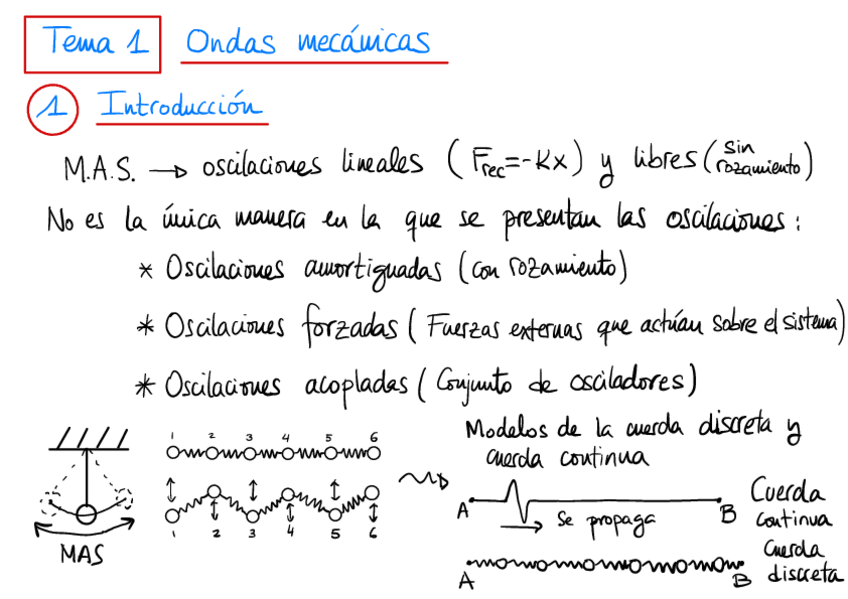 Tema 1 Ondas mecánicas
1 Introducción
M.A.S. → oscilaciones lineales (Frec=-Kx) y libres (sin rozamiento)
No es la única manera en la que se presentan las oscilaciones:
* Oscilaciones amortiguadas (con rozamiento)
* Oscilaciones forzadas (Fuerzas externas que actúan sobre el sistema)
* Oscilaciones acopladas (Conjunto de osciladores)
MAS
1 2 3 4 5 6
1 2 3 4 5 6
Modelos de la cuerda discreta y
cuerda continua
A B Cuerda continua
Se propaga
A B Cuerda discreta